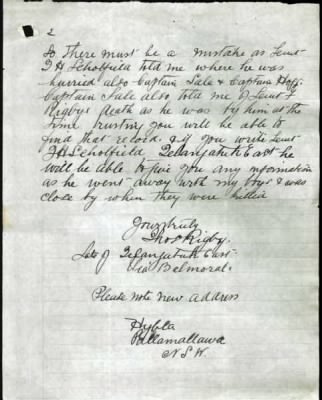 2
So There must be a mistake as Lieut
J H Scholfield told me where he was
burried also Captain Sale & Captain Hoff.
Captain Sale also told me of Lieut F
Rigbys death as he was by him at the
time trusting you will be able to
find that record if you write Lieut
J H Scholfield Telangatuk East he
will be able to give you any information
as he went away with my boys & was
close by when they were killed
Yours truly
Thos Rigby.
Late of Telangatuk East
Via Belmoral.
Please note new address
Pallamallawa
N S W.